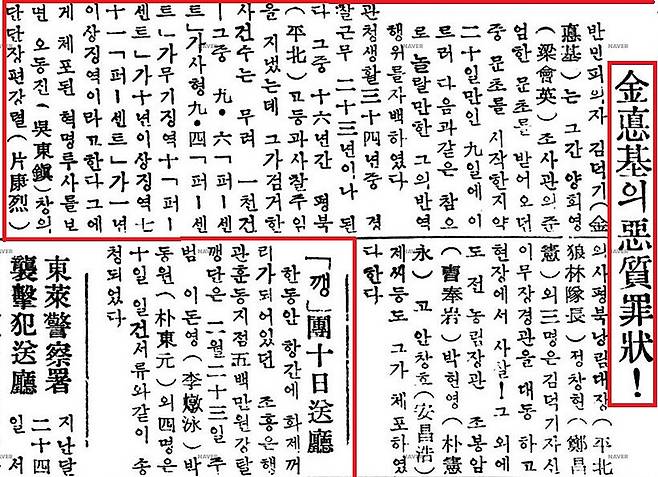 金悳基의 惡質罪狀!
반민피의자 김덕기(金
悳基)는 그간 양회영
(梁會英) 조사관의준
엄한 문초를 받어오던
중 문초를 시작한지약
二十일만인 九일에이
르러 다음과같은 참으
로 놀랄만한 그의반역
행위를자백하였다
관청생활三十四년중 경
찰근무 二十三년이나 된
다 그중 十六년간 평북
(平北)고등과사찰주임
을 지냈는데 그가검거한
사건수는 무려 一천건
ー그중 九·六「퍼ー센
트」가사형九·四「퍼ー센
트」가무기징역十「퍼ー
센트」가十년이상징역七
十一「퍼ー센트」가一년
이상징역이라고한다그에
게 체포된 혁명투사를보
면 오동진(吳東鎭)창의
단단장편강렬(片康烈)
의사평북낭림대장(平北
狼林隊長)정창현(鄭昌
憲)외三명은김덕기자신
이무장경관을 대동 하고
현장에서 사살! 그 외에
도 전농림장관 조봉암
(曺奉岩)박현영(朴憲
永) 고 안창호(安昌浩)
제씨등도 그가 체포하였
다한다
「깽」團十日送廳
한동안 항간에 화제꺼
리가되어있던 조흥은행
관훈동지점五백만원강탈
깽단은二월二十三일 주
범 이돈영(李燉泳)박
동원(朴東元)외四명은
十일 일건서류와같이 송
청되었다
東萊警察署
襲擊犯送廳
지난달
二十四
일 서
NAVER